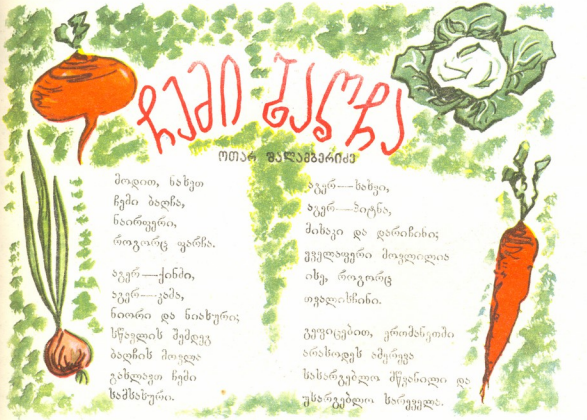 ჩემი ბაღჩა
ოთარ შალამბერიძე
მოდით, ნახეთ
ჩემი ბაღჩა,
ნაირფერი,
როგორც ფარჩა.
აგერ — ქინძი,
აგერ — კამა,
ნიორი და ნიახური;
სწავლის შემდეგ
ბაღჩის მოვლა
გახლავთ ჩემი
სამსახური.
აგერ — ხახვი,
აგერ — პიტნა,
მიხაკი და დარიჩინი;
ყველაფერი მოვლილია
ისე, როგორც
თვალისჩინი.
გეფიცებით, ერთმანეთში
არასოდეს ამერევა
სასარგებლო მწვანილი და
უსარგებლო სარეველა.